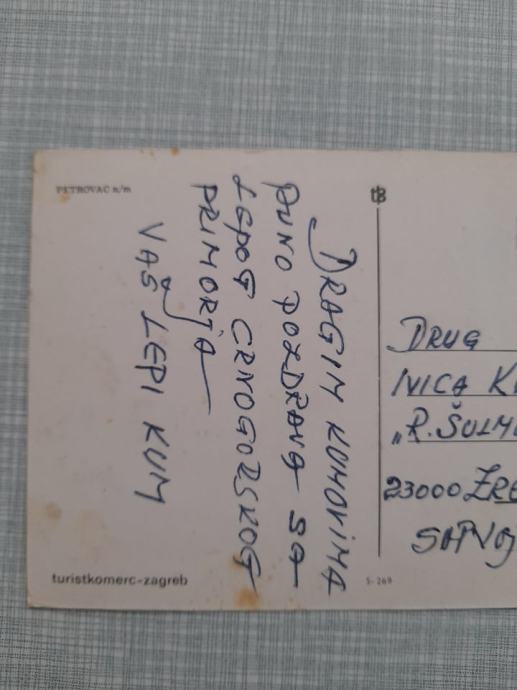 PETROVAC n/m
DRAGIM KUMOVIMA
PUNO POZDRAVA SA
LEPOG CRNOGORSKOG
PRIMORJA
VAŠ LEPI KUM
DRUG
IVICA
"R. ŠULM
23000 ZRE
turistkomerc-zagreb
S-269